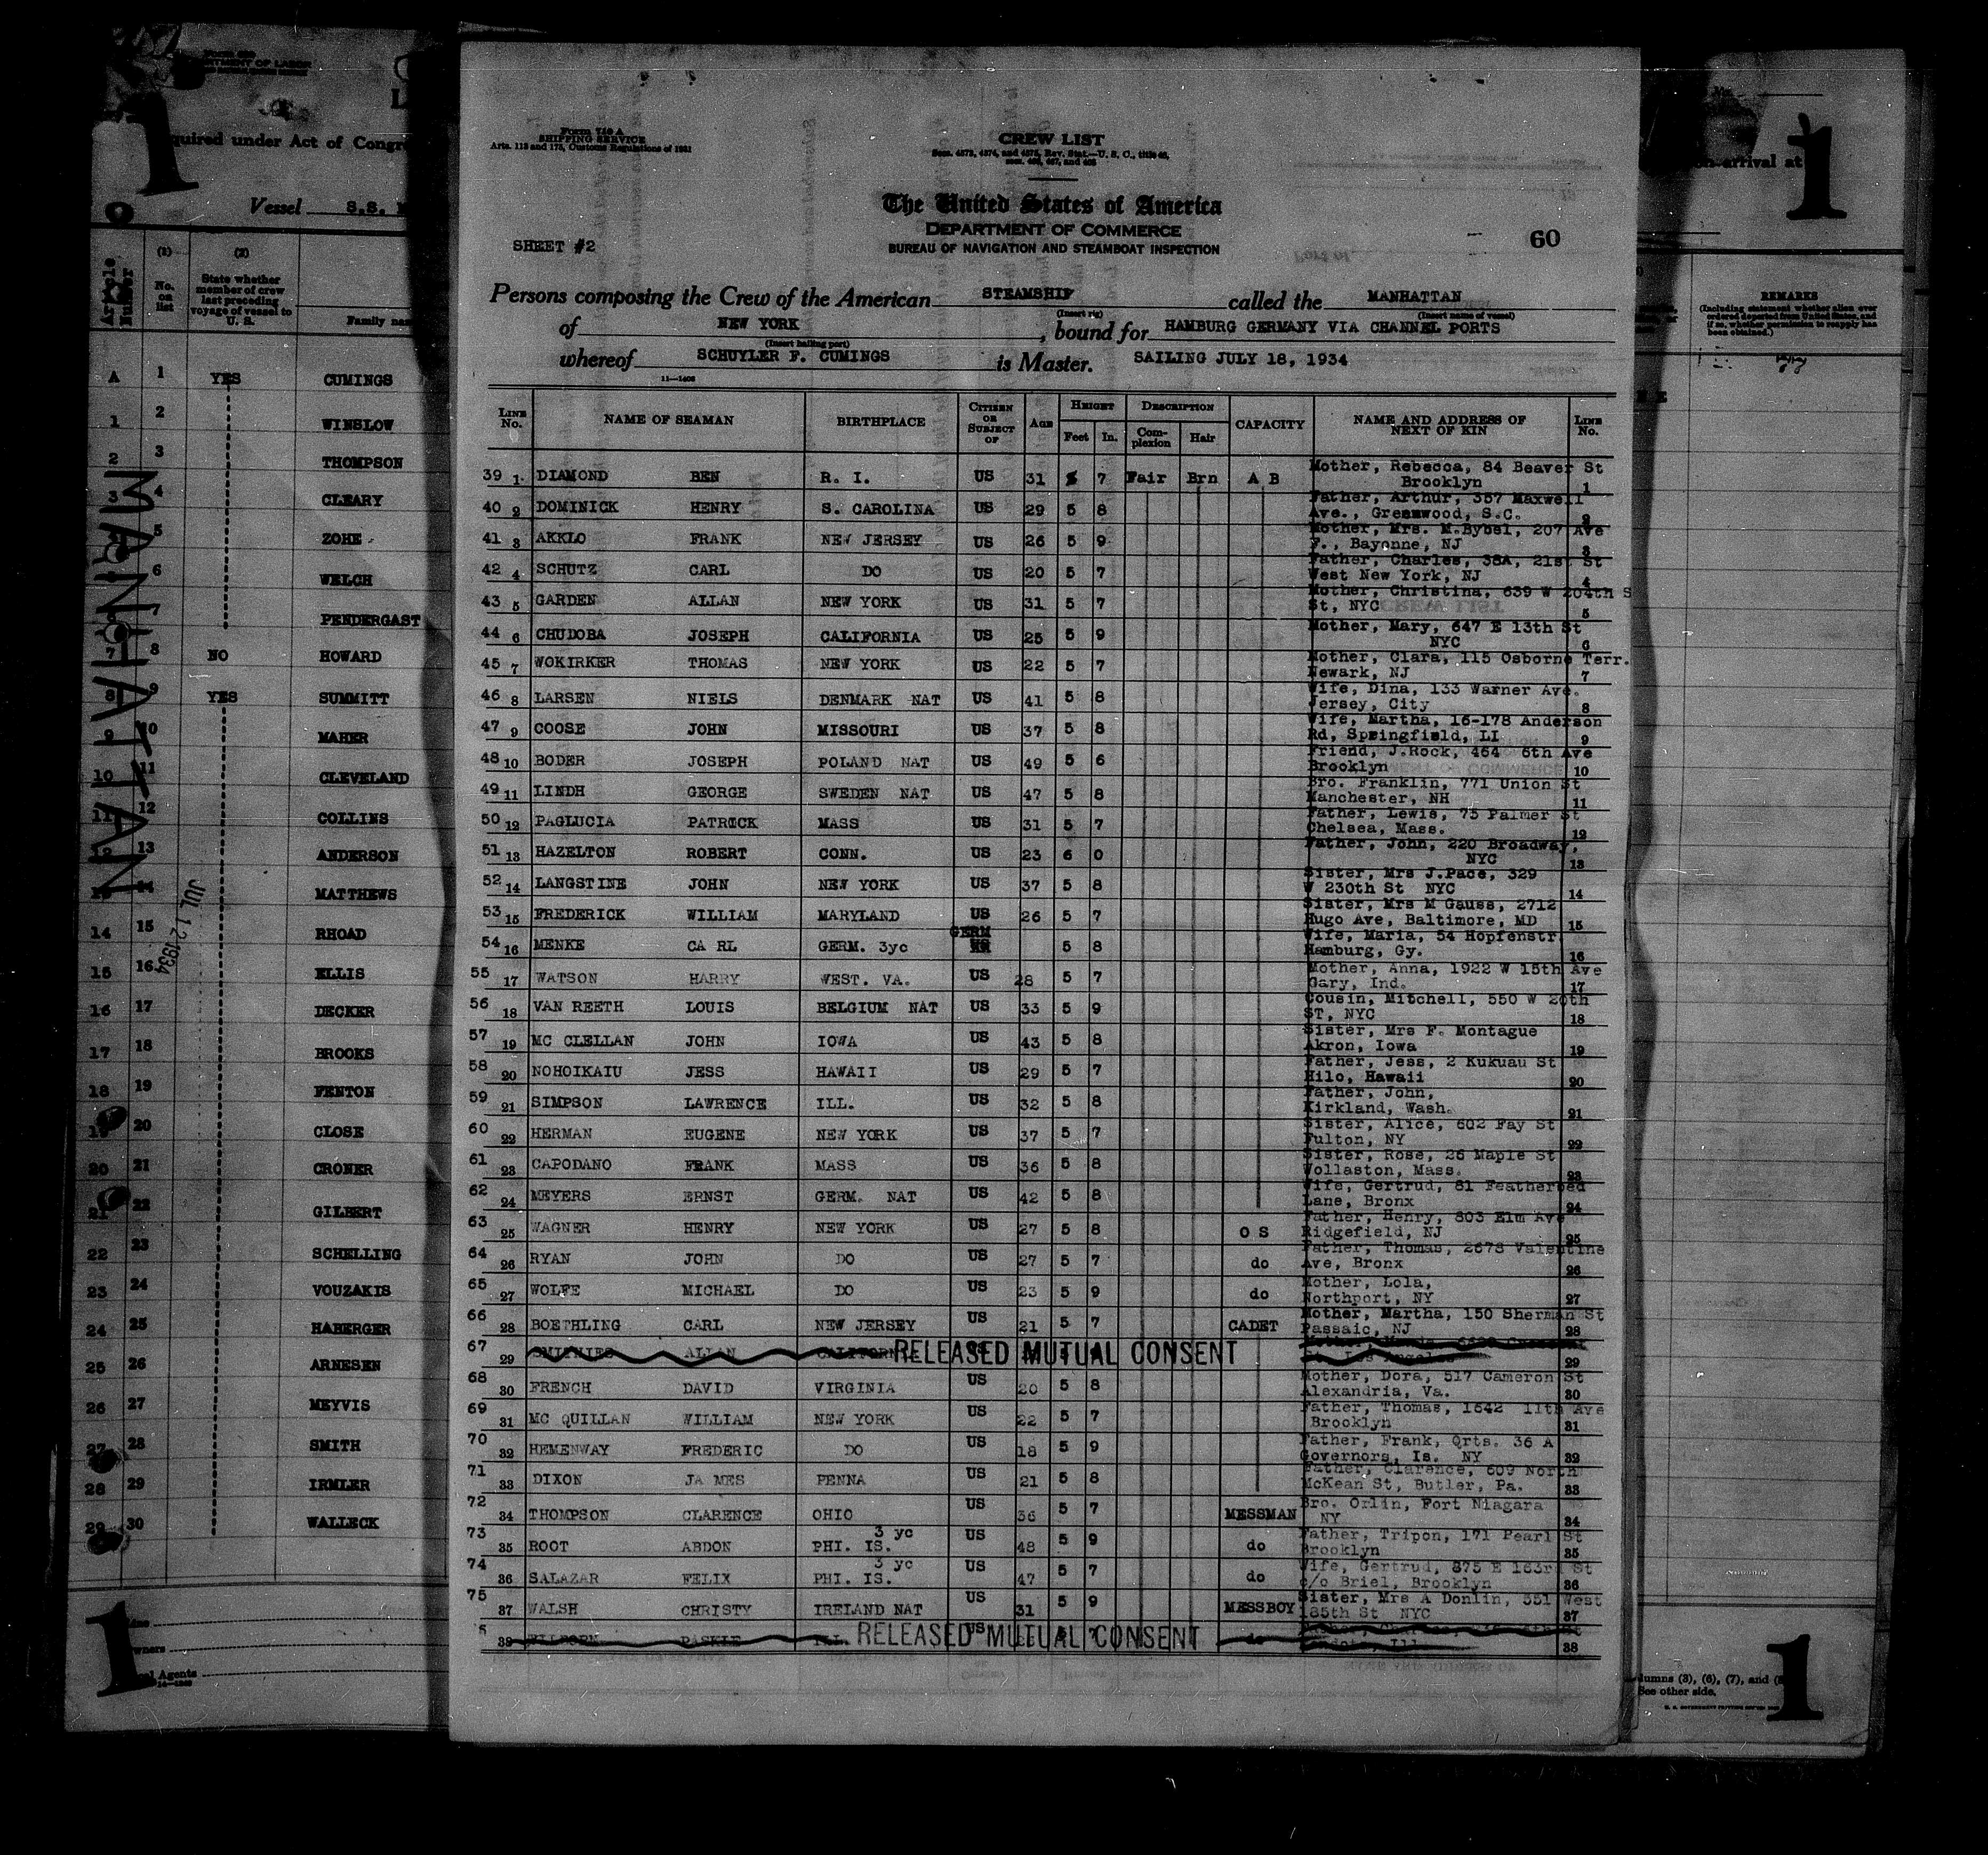 Form 710 A
SHIPPING SERVICE
Arts. 113 and 175, Customs Regulations of 1931
CREW LIST
The United States of America
DEPARTMENT OF COMMERCE
BUREAU OF NAVIGATION AND STEAMBOAT INSPECTION
SHEET #2
60
Persons composing the Crew of the American STEAMSHIP called the MANHATTAN
(Insert rig) (Insert name of vessel)
of NEW YORK, bound for HAMBURG GERMANY VIA CHANNEL PORTS
(Insert hailing port)
whereof SCHUYLER F. CUMINGS is Master. SAILING JULY 18, 1934
LINE No. NAME OF SEAMAN BIRTHPLACE CITIZEN OR SUBJECT OF AGE HEIGHT Feet In. DESCRIPTION Complexion Hair CAPACITY NAME AND ADDRESS OF NEXT OF KIN LINE No.
39 1 DIAMOND BEN R. I. US 31 5 7 Fair Brn A B Mother, Rebecca, 84 Beaver St Brooklyn 1
40 2 DOMINICK HENRY S. CAROLINA US 29 5 8 Father, Arthur, 357 Maxwell Ave., Greenwood, S.C. 2
41 3 AKKLO FRANK NEW JERSEY US 26 5 9 Mother, Mrs. M.Bybel, 207 Ave F., Bayonne, NJ 3
42 4 SCHUTZ CARL DO US 20 5 7 Father, Charles, 38A, 21st St West New York, NJ 4
43 5 GARDEN ALLAN NEW YORK US 31 5 7 Mother, Christina, 639 W 204th S St, NYC 5
44 6 CHUDOBA JOSEPH CALIFORNIA US 25 5 9 Mother, Mary, 647 E 13th St NYC 6
45 7 WOKIRKER THOMAS NEW YORK US 22 5 7 Mother, Clara, 115 Osborne Terr. Newark, NJ 7
46 8 LARSEN NIELS DENMARK NAT US 41 5 8 Wife, Dina, 133 Warner Ave. Jersey, City 8
47 9 COOSE JOHN MISSOURI US 37 5 8 Wife, Martha, 16-178 Anderson Rd, Springfield, LI 9
48 10 BODER JOSEPH POLAND NAT US 49 5 6 Friend, J.Rock, 464 6th Ave Brooklyn 10
49 11 LINDH GEORGE SWEDEN NAT US 47 5 8 Bro. Franklin, 771 Union St Manchester, NH 11
50 12 PAGLUCIA PATRICK MASS US 31 5 7 Father, Lewis, 75 Palmer St Chelsea, Mass. 12
51 13 HAZELTON ROBERT CONN. US 23 6 0 Father, John, 220 Broadway, NYC 13
52 14 LANGSTINE JOHN NEW YORK US 37 5 8 Sister, Mrs J.Pace, 329 W 230th St NYC 14
53 15 FREDERICK WILLIAM MARYLAND US 26 5 7 Sister, Mrs M Gauss, 2712 Hugo Ave, Baltimore, MD 15
54 16 MENKE CA RL GERM. 3yc GERM 5 8 Wife, Maria, 54 Hopfenstr Hamburg, Gy. 16
55 17 WATSON HARRY WEST. VA. US 28 5 7 Mother, Anna, 1922 W 15th Ave Gary, Ind. 17
56 18 VAN REETH LOUIS BELGIUM NAT US 33 5 9 Cousin, Mitchell, 550 W 20th ST, NYC 18
57 19 MC CLELLAN JOHN IOWA US 43 5 8 Sister, Mrs F. Montague Akron, Iowa 19
58 20 NOHOIKAIU JESS HAWAII US 29 5 7 Father, Jess, 2 Kukuau St Hilo, Hawaii 20
59 21 SIMPSON LAWRENCE ILL. US 32 5 8 Father, John, Kirkland, Wash. 21
60 22 HERMAN EUGENE NEW YORK US 37 5 7 Sister, Alice, 602 Fay St Fulton, NY 22
61 23 CAPODANO FRANK MASS US 36 5 8 Sister, Rose, 26 Maple St Wollaston, Mass. 23
62 24 MEYERS ERNST GERM. NAT US 42 5 8 Wife, Gertrud, 81 Featherbed Lane, Bronx 24
63 25 WAGNER HENRY NEW YORK US 27 5 8 O S Father, Henry, 803 Elm Ave Ridgefield, NJ 25
64 26 RYAN JOHN DO US 27 5 7 do Father, Thomas, 2678 Valentine Ave, Bronx 26
65 27 WOLFE MICHAEL DO US 23 5 9 do Mother, Lola, Northport, NY 27
66 28 BOETHLING CARL NEW JERSEY US 21 5 7 CADET Mother, Martha, 150 Sherman St Passaic, NJ 28
67 29 ALLAN CALIFORNIA RELEASED MUTUAL CONSENT Los Angeles 29
68 30 FRENCH DAVID VIRGINIA US 20 5 8 Mother, Dora, 517 Cameron St Alexandria, Va. 30
69 31 MC QUILLAN WILLIAM NEW YORK US 22 5 7 Father, Thomas, 1642 11th Ave Brooklyn 31
70 32 HEMENWAY FREDERIC DO US 18 5 9 Father, Frank, Qrts. 36 A Governors, Is. NY 32
71 33 DIXON JA MES PENNA US 21 5 8 Father, Clarence, 609 North McKean St, Butler, Pa. 33
72 34 THOMPSON CLARENCE OHIO US 36 5 7 MESSMAN Bro. Orlin, Fort Niagara NY 34
73 35 ROOT ABDON PHI. IS. 3 yc US 48 5 9 do Father, Tripon, 171 Pearl St Brooklyn 35
74 36 SALAZAR FELIX PHI. IS. 3 yc US 47 5 7 do Wife, Gertrud, 875 E 163rd St c/o Briel, Brooklyn 36
75 37 WALSH CHRISTY IRELAND NAT US 31 5 9 MESSBOY Sister, Mrs A Donlin, 351 West 185th St NYC 37
38 ILL. RELEASED MUTUAL CONSENT US do 38
DEPARTMENT OF LABOR
required under Act of Congr
Vessel S.S.
Article Number
(1) No. on list
(2) State whether member of crew last preceding voyage of vessel to U. S.
Family nam
A 1 YES CUMINGS
1 2 WINSLOW
2 3 THOMPSON
3 4 CLEARY
5 ZOHE
6 WELCH
7 PENDERGAST
7 8 NO HOWARD
8 9 YES SUMMITT
9 10 MAHER
10 11 CLEVELAND
11 12 COLLINS
12 13 ANDERSON
13 14 MATTHEWS
14 15 RHOAD
15 16 ELLIS
16 17 DECKER
17 18 BROOKS
18 19 FENTON
19 20 CLOSE
20 21 CRONER
21 22 GILBERT
22 23 SCHELLING
23 24 VOUZAKIS
24 25 HABERGER
25 26 ARNESEN
26 27 MEYVIS
27 28 SMITH
28 29 IRMLER
29 30 WALLECK
MANHATTAN
JUL 12 1934
1
1
arrival at
1
REMARKS
(Including statement whether alien ever ordered deported from United States, and if so, whether permission to reapply has been obtained.)
lumns (3), (6), (7), and (8
See other side.
1